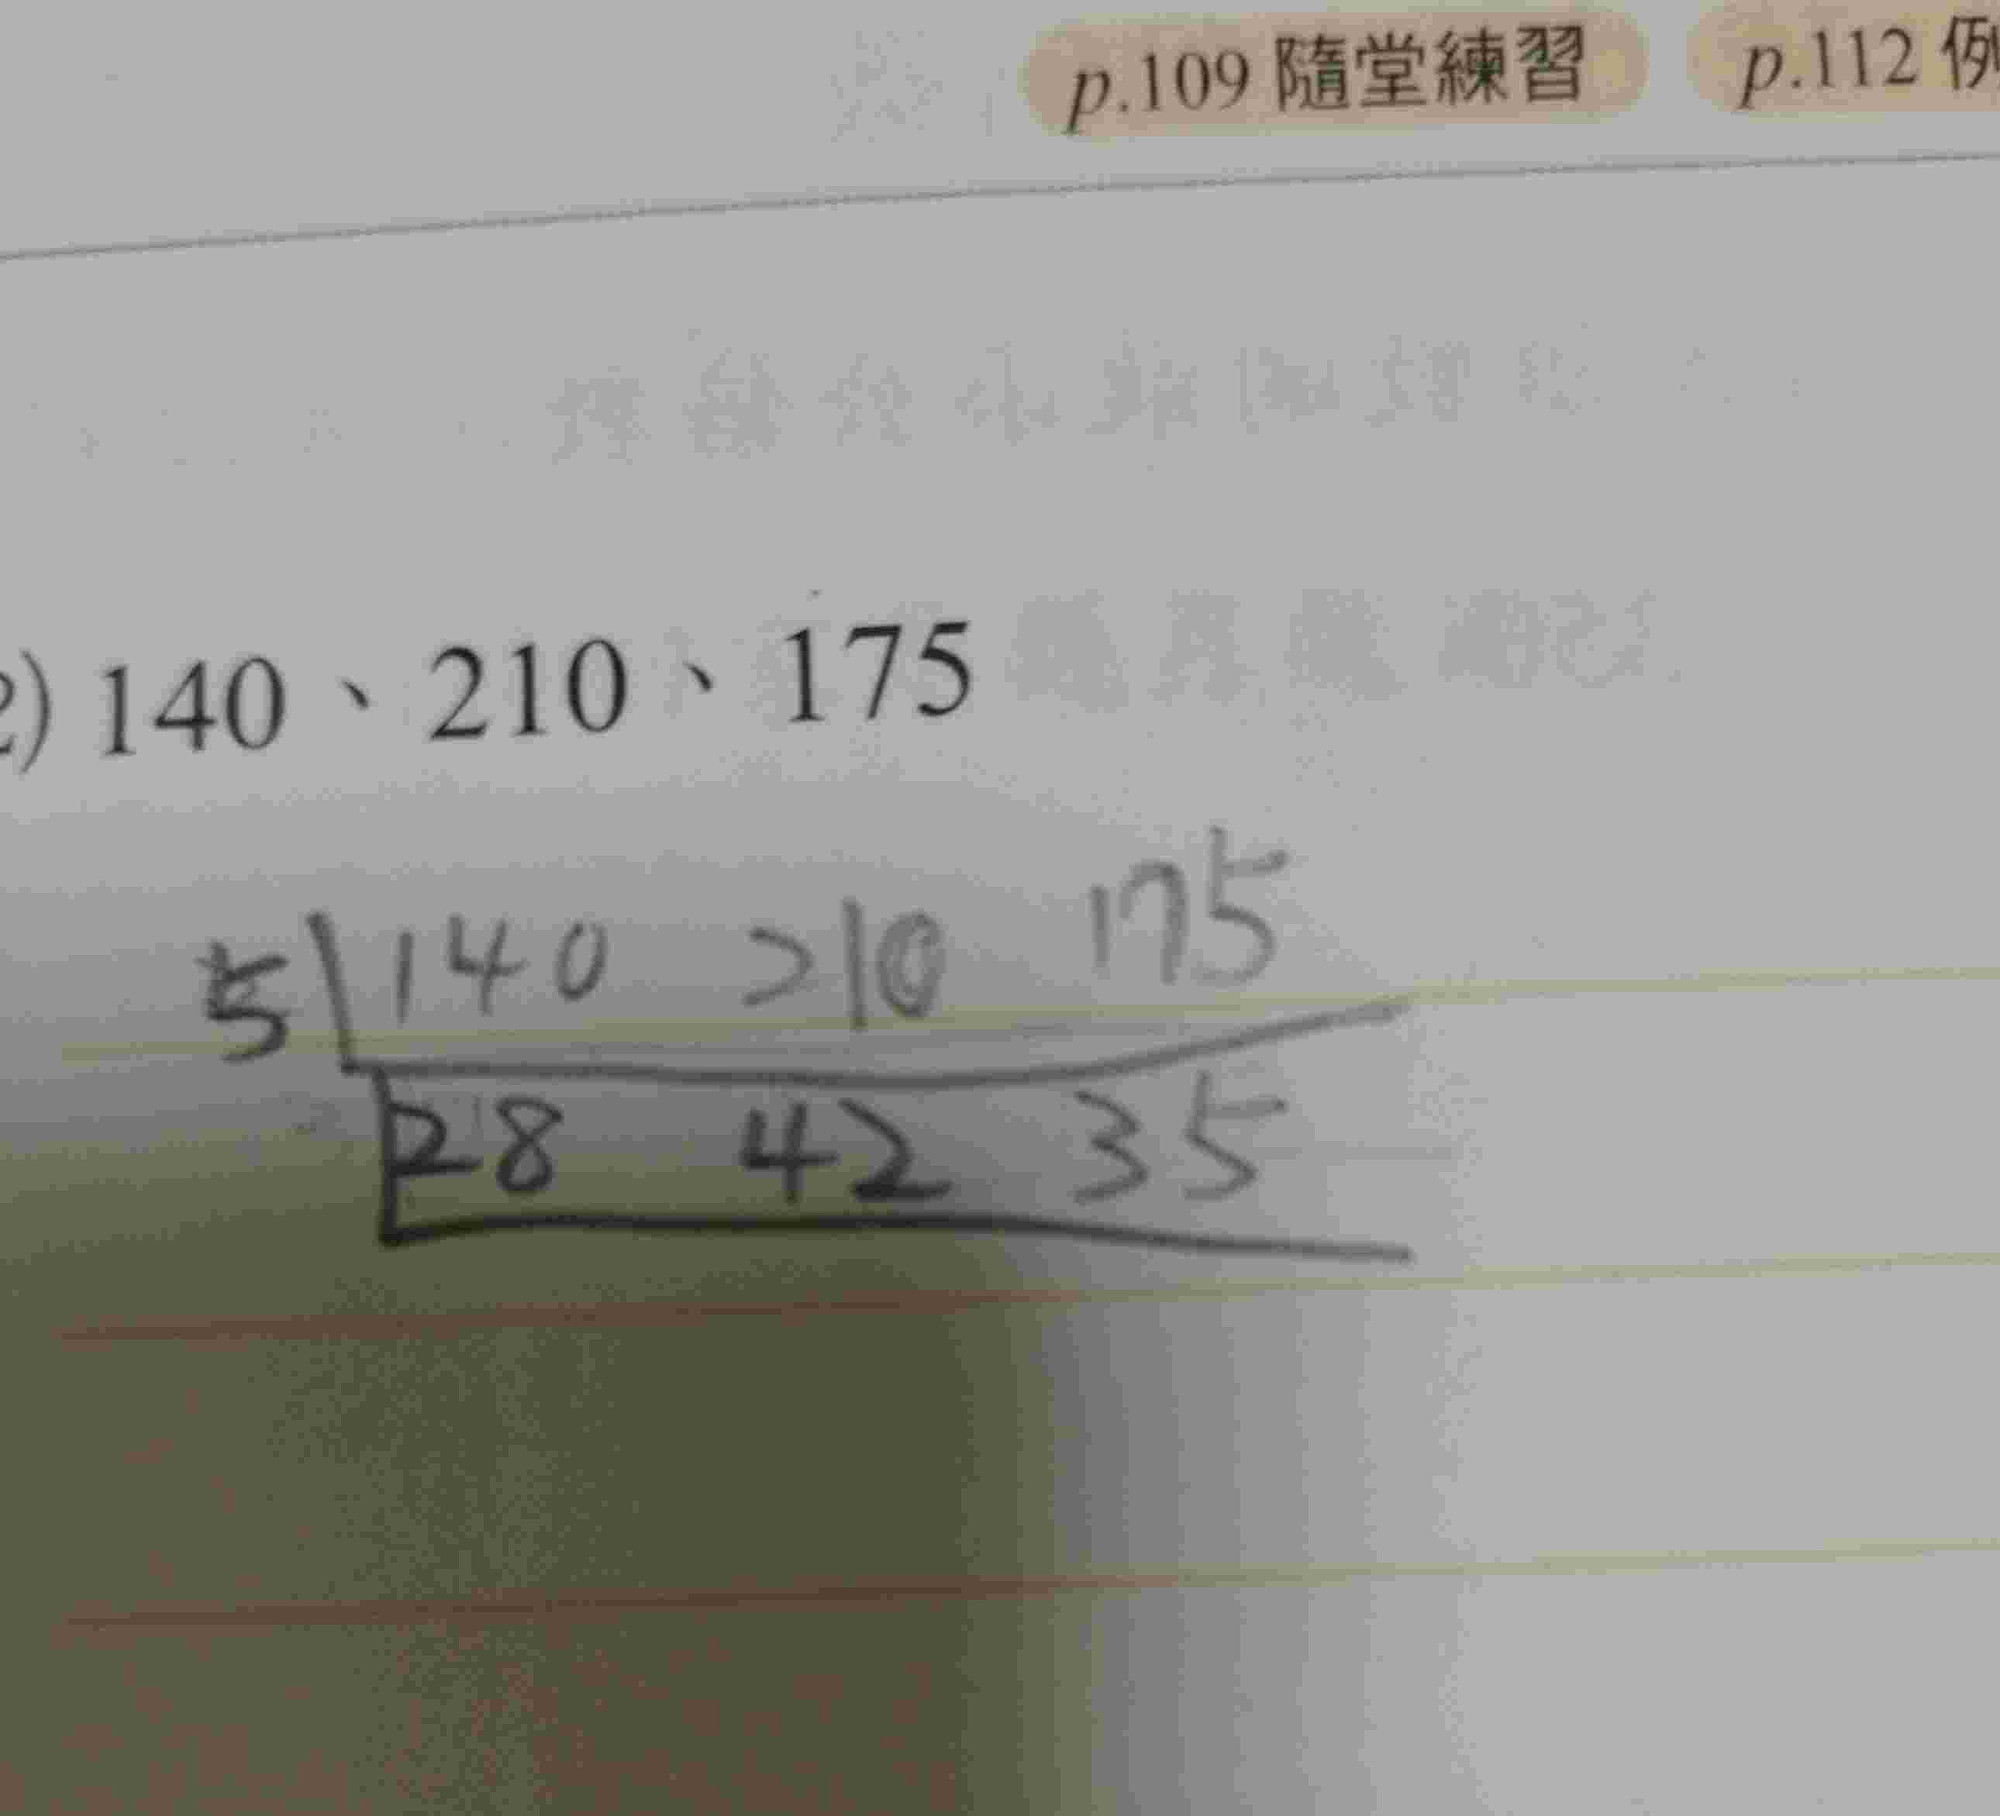 p.109 隨堂練習 p.112 例
2) 140、210、175
5 140 210 175
28 42 35